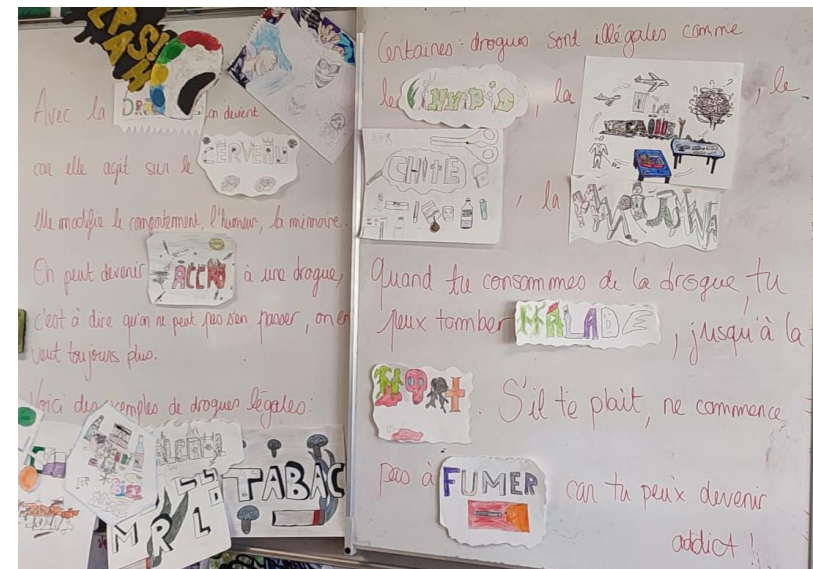 Avec la DR on devient
car elle agit sur le CERVEAU
elle modifie le comportement, l'humeur, la mémoire.
On peut devenir ACCRO à une drogue,
c'est à dire qu'on ne peut pas s'en passer, on en
veut toujours plus.
Voici des exemples de drogues légales:
TABAC
Certaines drogues sont illégales comme
le CANNABIS, la , le
CHITE, la
Quand tu consommes de la drogue, tu
peux tomber MALADE, jusqu'à la
MORT. S'il te plait, ne commence
pas à FUMER car tu peux devenir
addict !